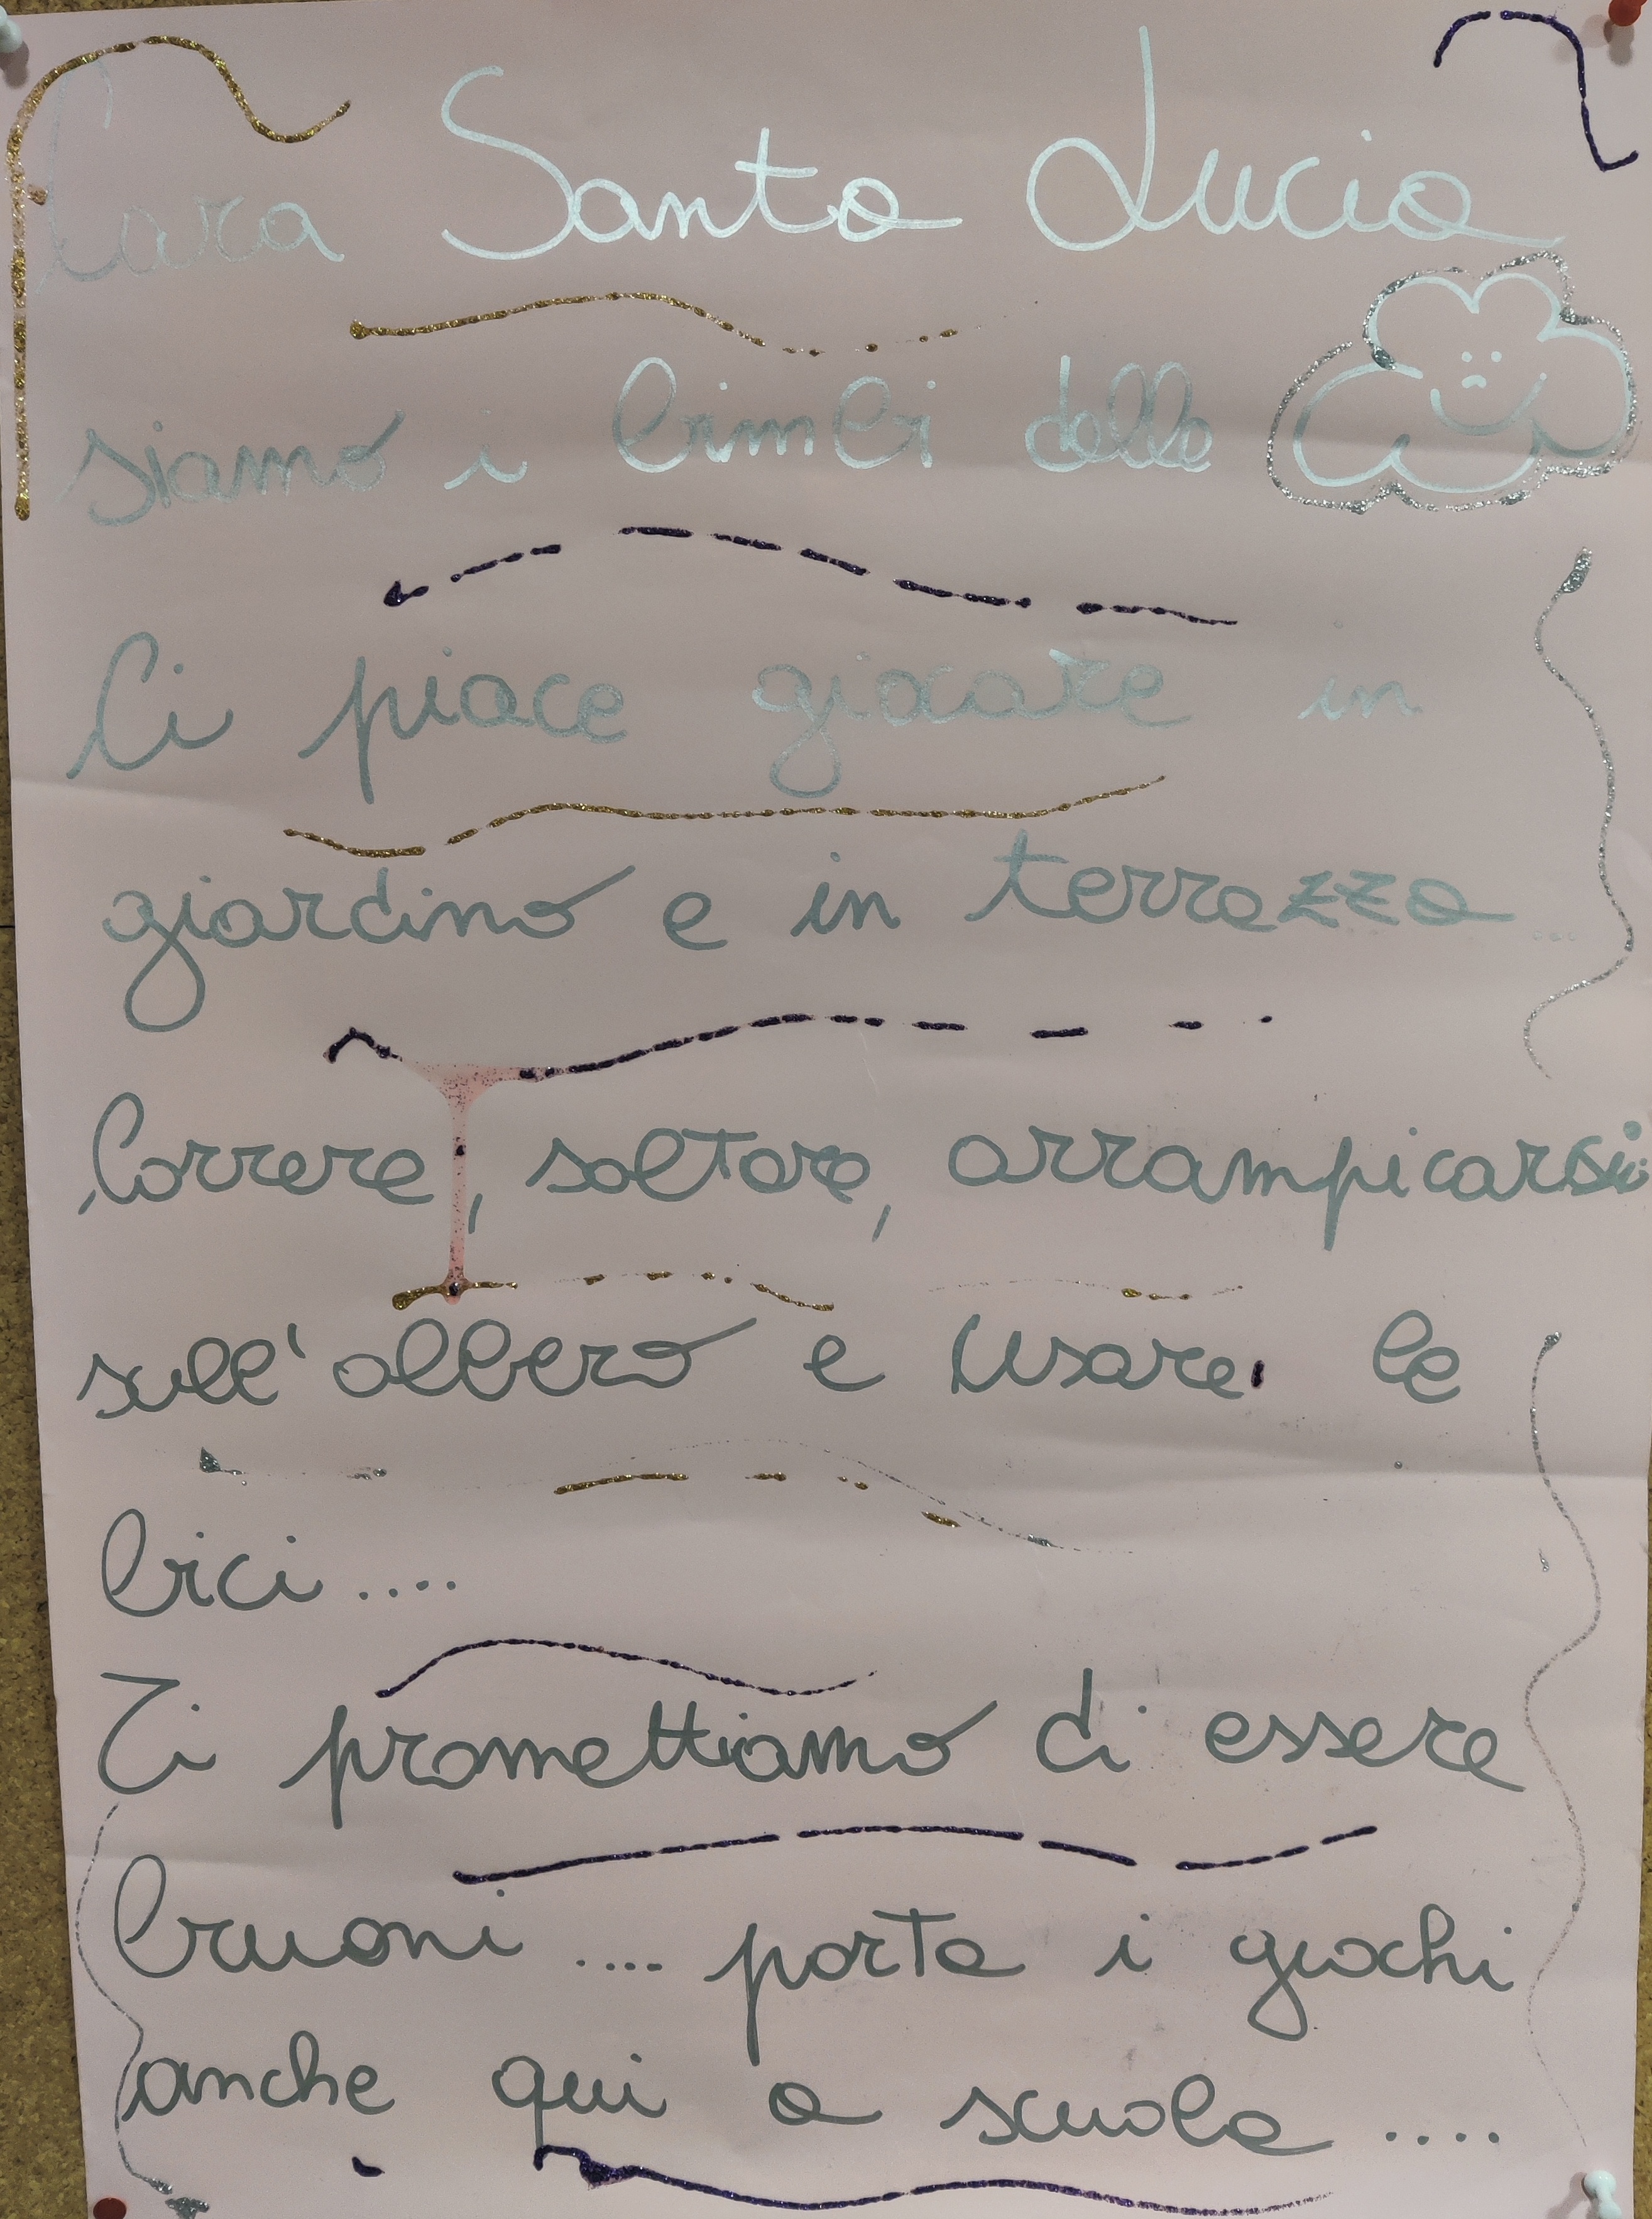 Cara Santa Lucia
siamo i bimbi della
Ci piace giocare in
giardino e in terrazza...
Correre, saltare, arrampicarsi
sull'albero e usare le
bici....
Ti promettiamo di essere
buoni.... porta i giochi
anche qui a scuola....